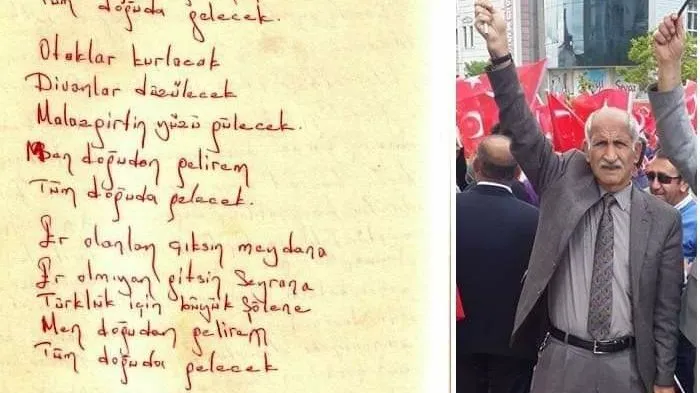 Tüm doğuda gelecek.
Otaklar kurlacak
Divanlar düzülecek
Malazgirtin yüzü gülecek.
Men doğudan gelirem
Tüm doğuda gelecek.
Er olanlan çıksın meydana
Er olmıyan gitsin Seyrana
Türklük için büyük Şölene
Men doğudan gelirem
Tüm doğuda gelecek